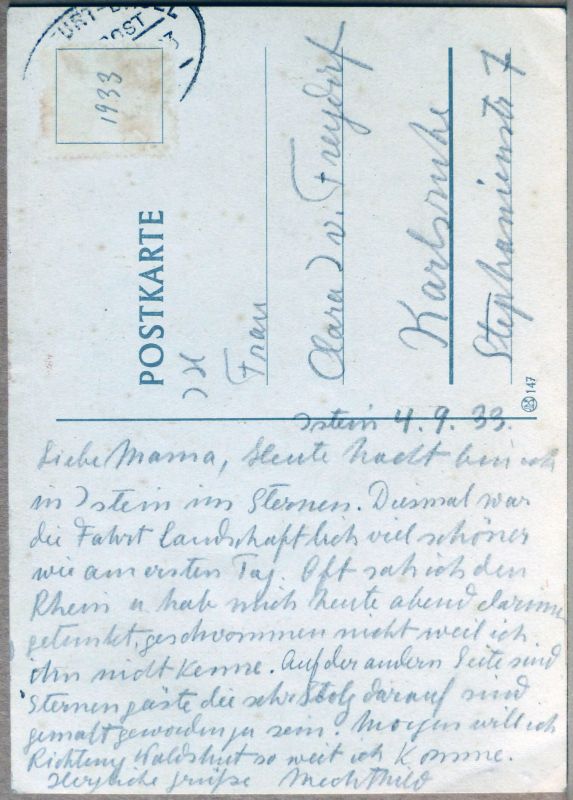 POST
1933
POSTKARTE
Frau
Clara v. Freydorf
Karlsruhe
Stephanienstr 7
147
Istein 4.9.33.
Liebe Mama, Heute Nacht bin ich
in Istein im Sternen. Diesmal war
die Fahrt landschaftlich viel schöner
wie am ersten Tag. Oft sah ich den
Rhein u hab mich heute abend darinnen
getunkt, geschwommen nicht weil ich
ihn nicht kenne. Auf der andern Seite sind
Sternengäste die sehr Stolz darauf sind
gemalt geworden zu sein. Morgen will ich
Richtung Waldshut so weit ich Komme.
Herzliche Grüße Mechthild